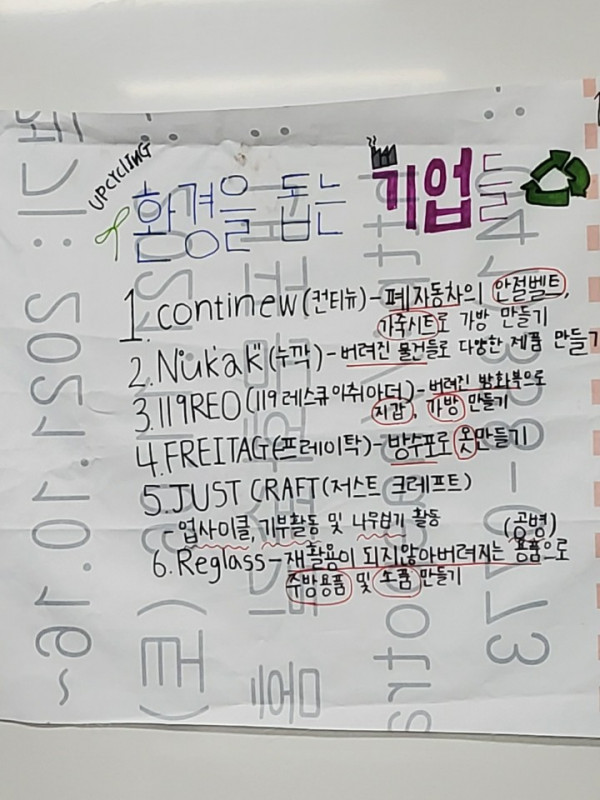 UPCYCLING
환경을 돕는 기업들
1. continew(컨티뉴)-폐자동차의 안절벨트,
가죽시트로 가방 만들기
2. Nukak(누깍)-버려진 물건들로 다양한 제품 만들기
3. 119REO(119레스큐이취아더)-버려진 방화복으로
지갑, 가방 만들기
4. FREITAG(프레이탁)-방수포로 옷만들기
5. JUST CRAFT(저스트 크레프트)
-업사이클, 기부활동 및 나무심기 활동
(공병)
6. Reglass-재활용이 되지않아버려지는 용품으로
주방용품 및 소품 만들기